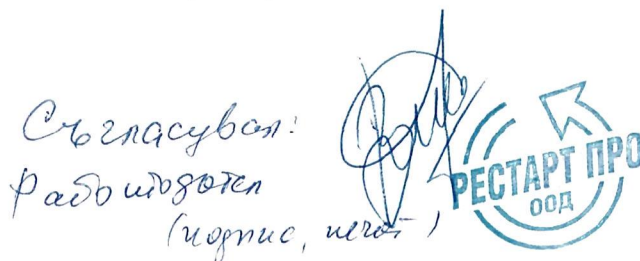 Съгласувал:
Работодател
(подпис, печат)
РЕСТАРТ ПРО
ООД